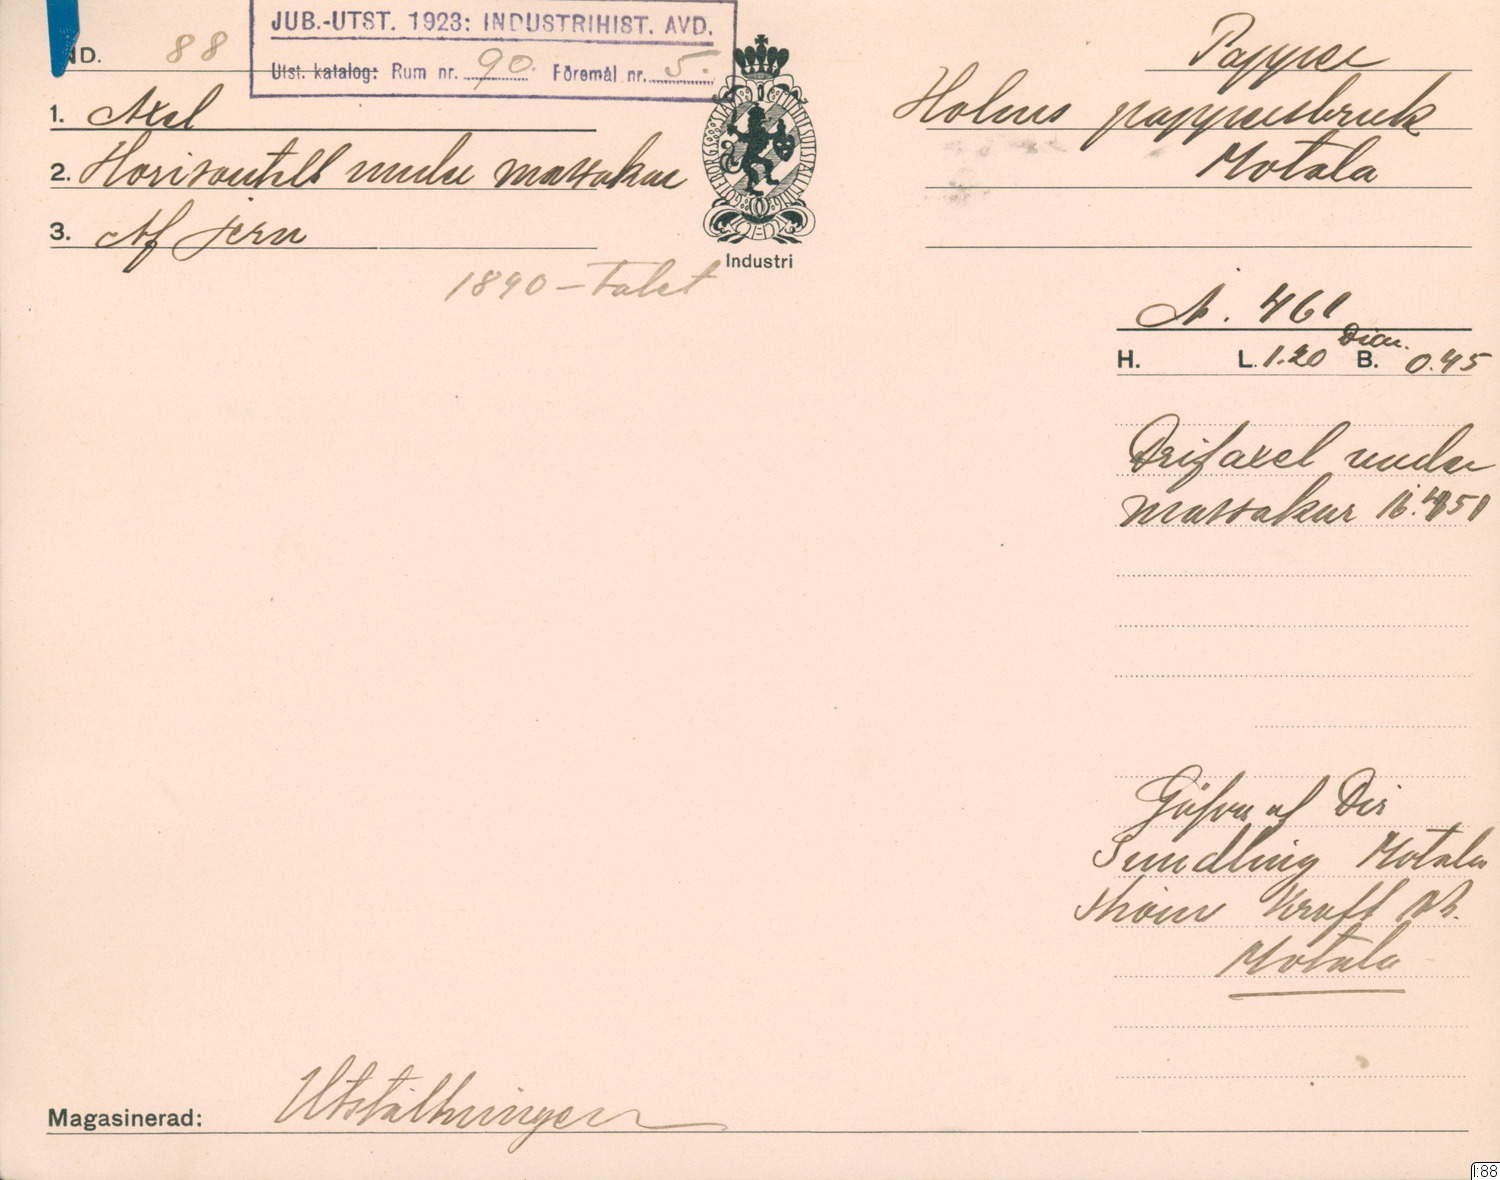 JUB.-UTST. 1923: INDUSTRIHIST. AVD.
Utst. katalog: Rum nr. 90. Föremål nr. 5.
ND. 88
1. Axel
2. Horisontell under massakar
3. Af jern
1890-talet
GÖTEBORGS STADS MINNESUTSTÄLLNING
Industri
Papper
Holms pappersbruk
Motala
N. 461
H. L. 1.20 Diam. B. 0.45
Drifaxel under
massakar
Gåfva af Dir
Sundling Motala
Ströms Kraft
Motala
Magasinerad: Utställningen
I:88